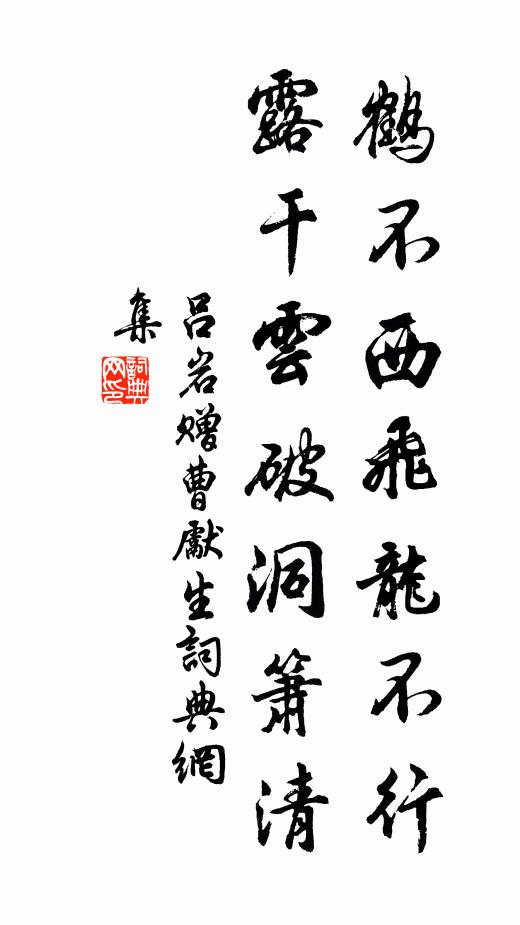 鶴不西飛龍不行
露干雲破洞簫清
吕岩赠曹獻生詞典網
集
詞典网印